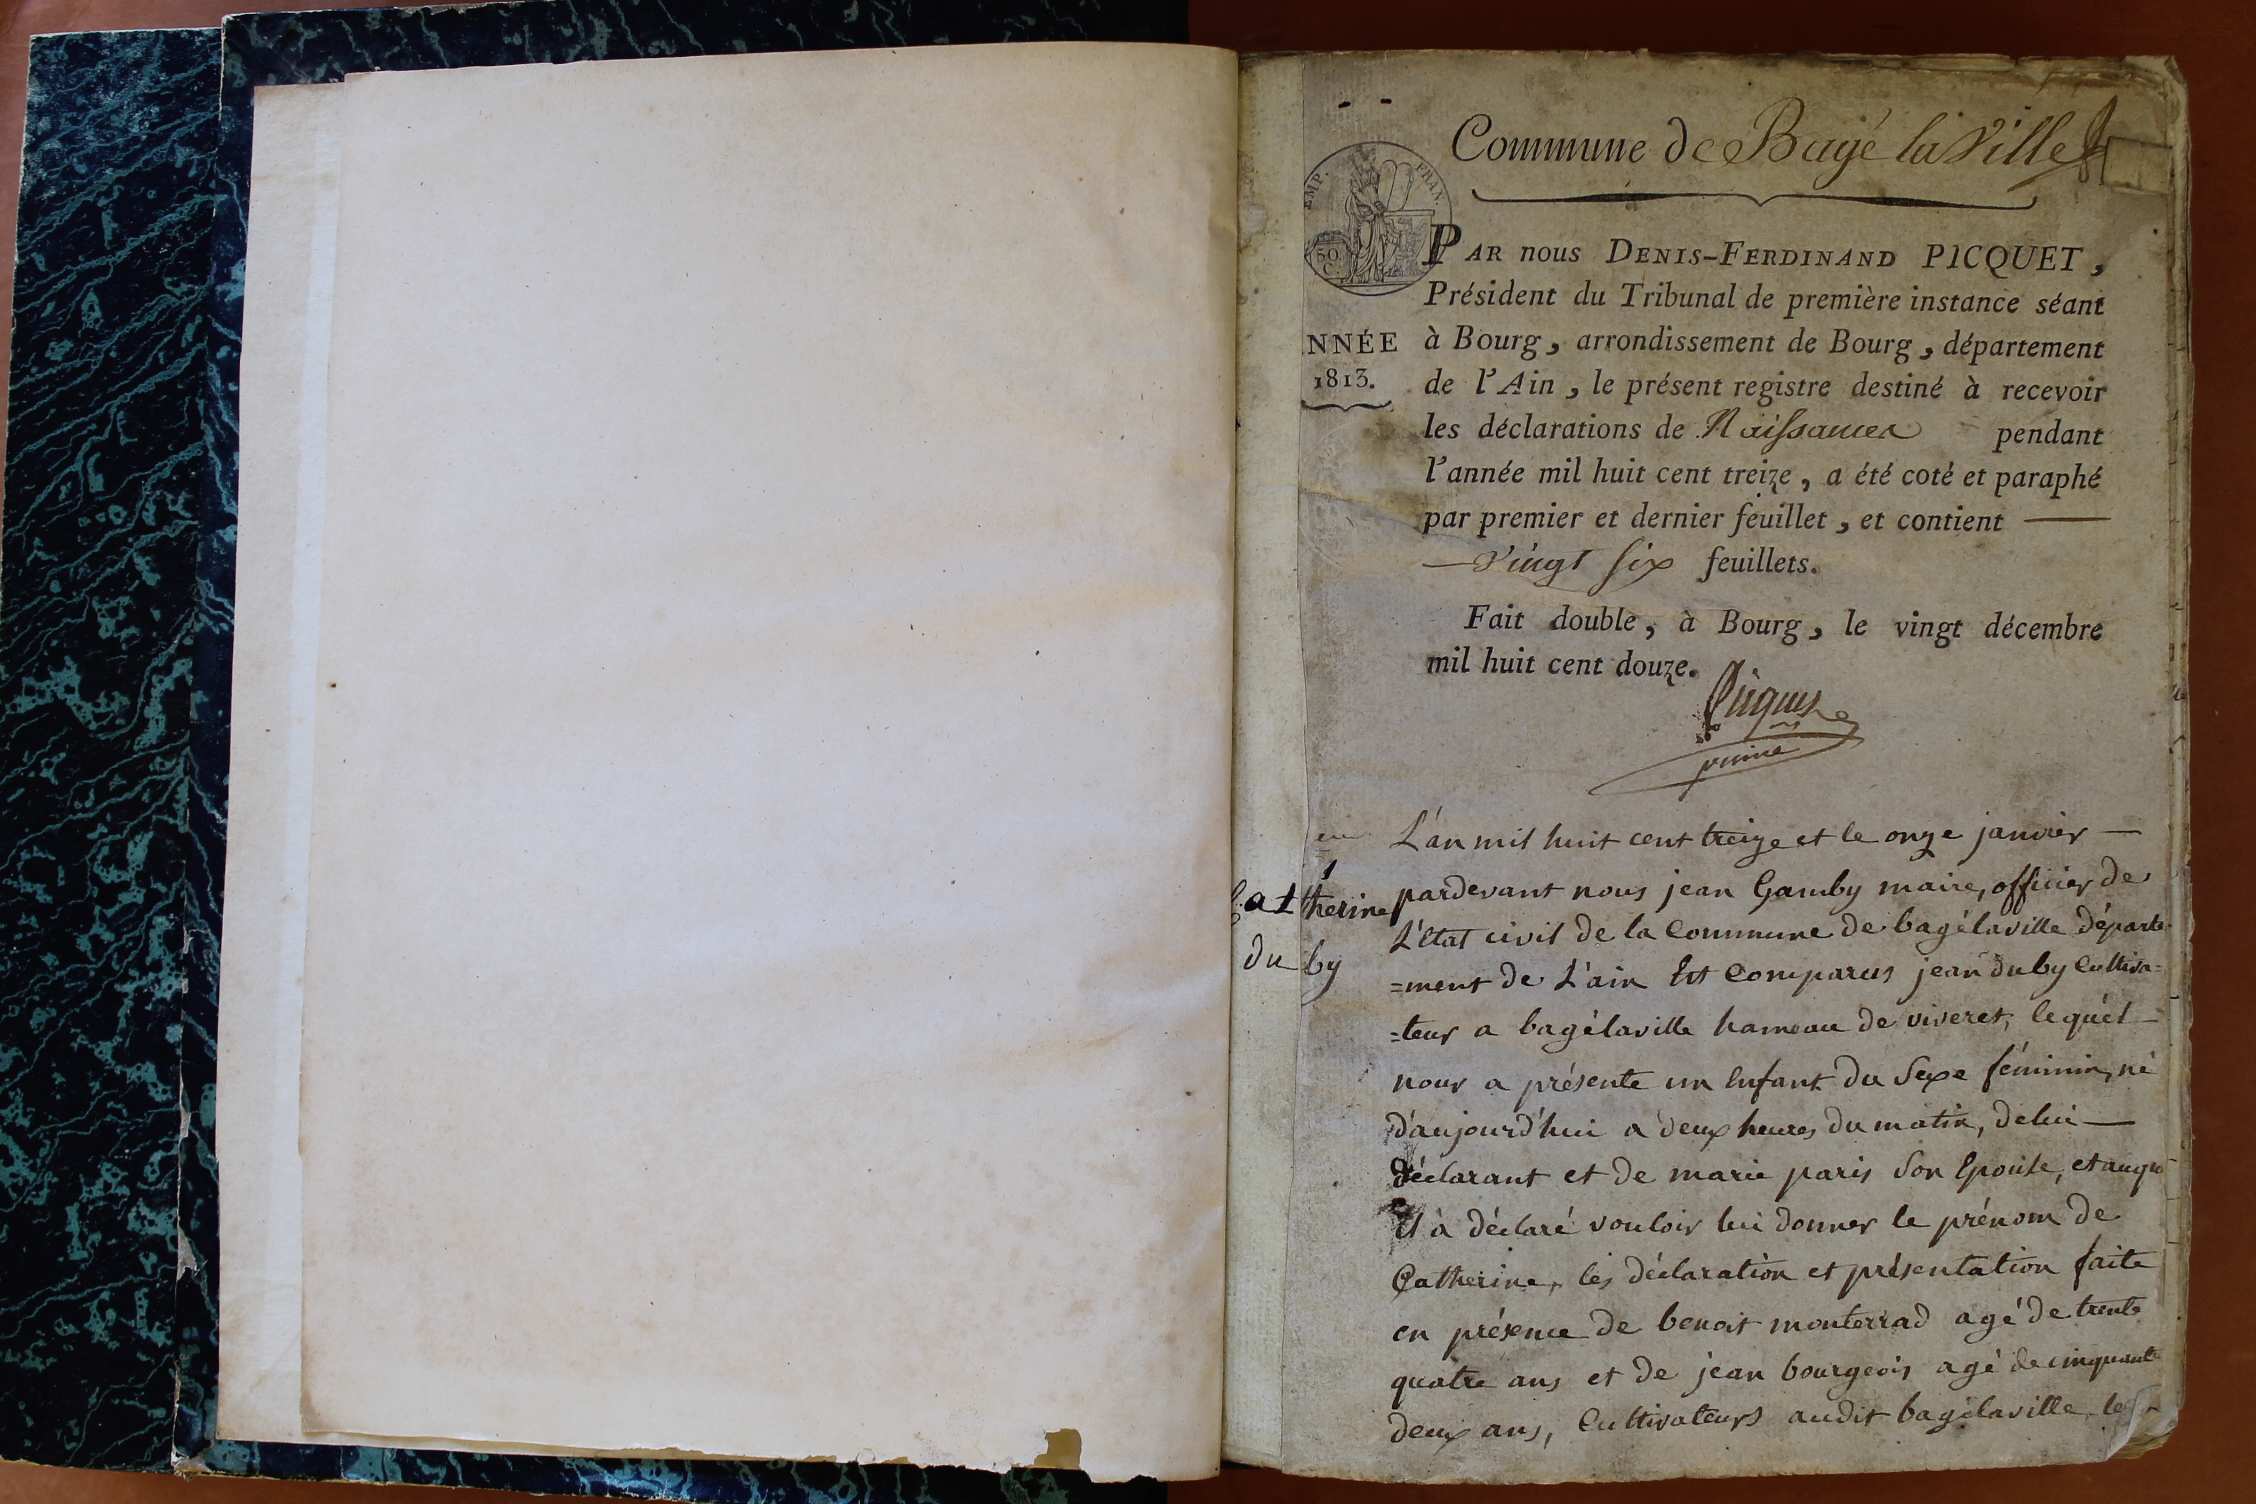 Commune de Bagé la Ville
EMP. FRAN.
50 C.
PAR nous DENIS-FERDINAND PICQUET,
Président du Tribunal de première instance séant
NNÉE
1813.
à Bourg, arrondissement de Bourg, département
de l'Ain, le présent registre destiné à recevoir
les déclarations de Naissances pendant
l'année mil huit cent treize, a été coté et paraphé
par premier et dernier feuillet, et contient —
— Vingt six feuillets.
Fait double, à Bourg, le vingt décembre
mil huit cent douze.
Picquet
1
Catherine
duby
L'an mil huit cent treize et le onze janvier —
pardevant nous jean Gamby maire, officier de
L'état civil de la Commune de bagélaville départe-
=ment de L'ain Est Comparus jean duby Cultiva=
=teur a bagélaville hameau de viveret, lequél —
nous a présente un Enfant du Sexe féminin, né
d'aujourd'hui a deux heures du matin, de lui —
déclarant et de marie paris Son Epouse, et auquel
il à déclaré vouloir lui donner le prénom de
Catherine, les déclaration et présentation faite
en présence de benoit monterrad agé de trente
quatre ans et de jean bourgeois agé de cinquante
deux ans, Cultivateurs audit bagélaville, le